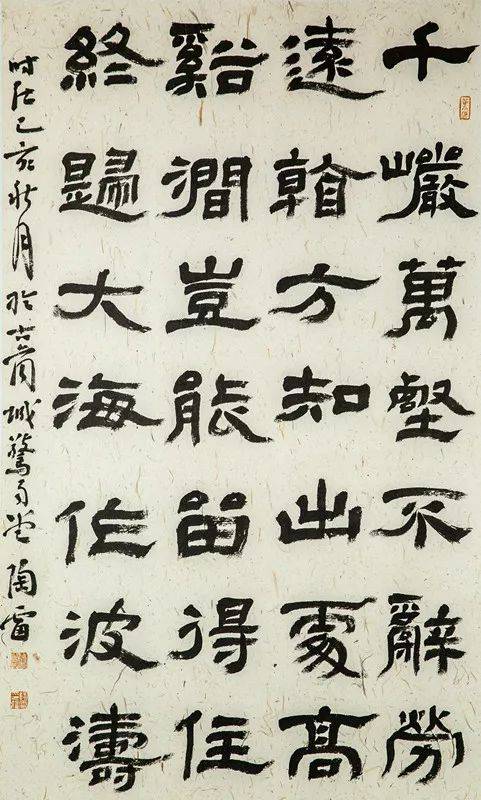 千巖萬壑不辭勞
遠看方知出處高
谿澗豈能留得住
終歸大海作波濤
時在己亥秋月於 城 堂 陶雷